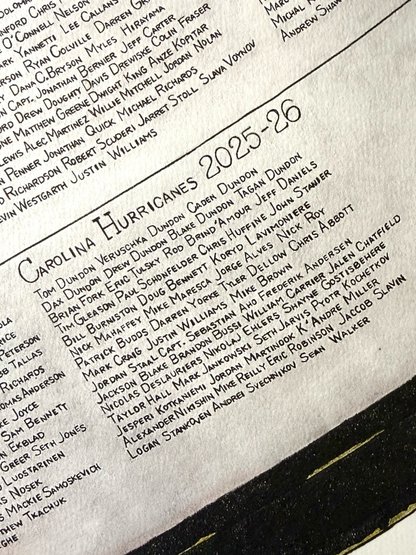 O'Connell Nelson
Yannetti Lee Callans
Ryan Colville Darren
Dana C. Bryson Myles Hirayama
Capt. Jonathan Bernier Jeff Carter
Drew Doughty Davis Drewiske Colin Fraser
Matthew Greene Dwight King Anze Kopitar
Lewis Alec Martinez Willie Mitchell Jordan Nolan
Penner Jonathan Quick Michael Richards
Richardson Robert Scuderi Jarret Stoll Slava Voynov
Westgarth Justin Williams
Andrew
Carolina Hurricanes 2025-26
Tom Dundon Veruschka Dundon Caden Dundon
Dax Dundon Drew Dundon Blake Dundon Tagan Dundon
Brian Fork Eric Tulsky Rod Brind'Amour Jeff Daniels
Tim Gleason Paul Schönfelder Chris Huffine John Stanier
Bill Burniston Doug Bennett Koryd Lavimoniere
Nick Mahaffey Mike Mapesca Jorge Alves Nick Roy
Patrick Budds Darren Yorke Tyler Dellow Chris Abbott
Mark Craig Justin Williams Mike Brown
Jordan Staal Capt. Sebastian Aho Frederik Andersen
Jackson Blake Brandon Bussi William Carrier Jalen Chatfield
Nicolas Deslauriers Nikolaj Ehlers Shayne Gostisbehere
Taylor Hall Mark Jankowski Seth Jarvis Pyotr Kochetkov
Jesperi Kotkaniemi Jordan Martinook K'Andre Miller
Alexander Nikishin Mike Reilly Eric Robinson Jacob Slavin
Logan Stankoven Andrei Svechnikov Sean Walker
Peterson
Tallas
Richards
Anderson
Joyce
Sam Bennett
Ekblad
Greer Seth Jones
Luostarinen
Nosek
Mackie Samoskevich
Tkachuk